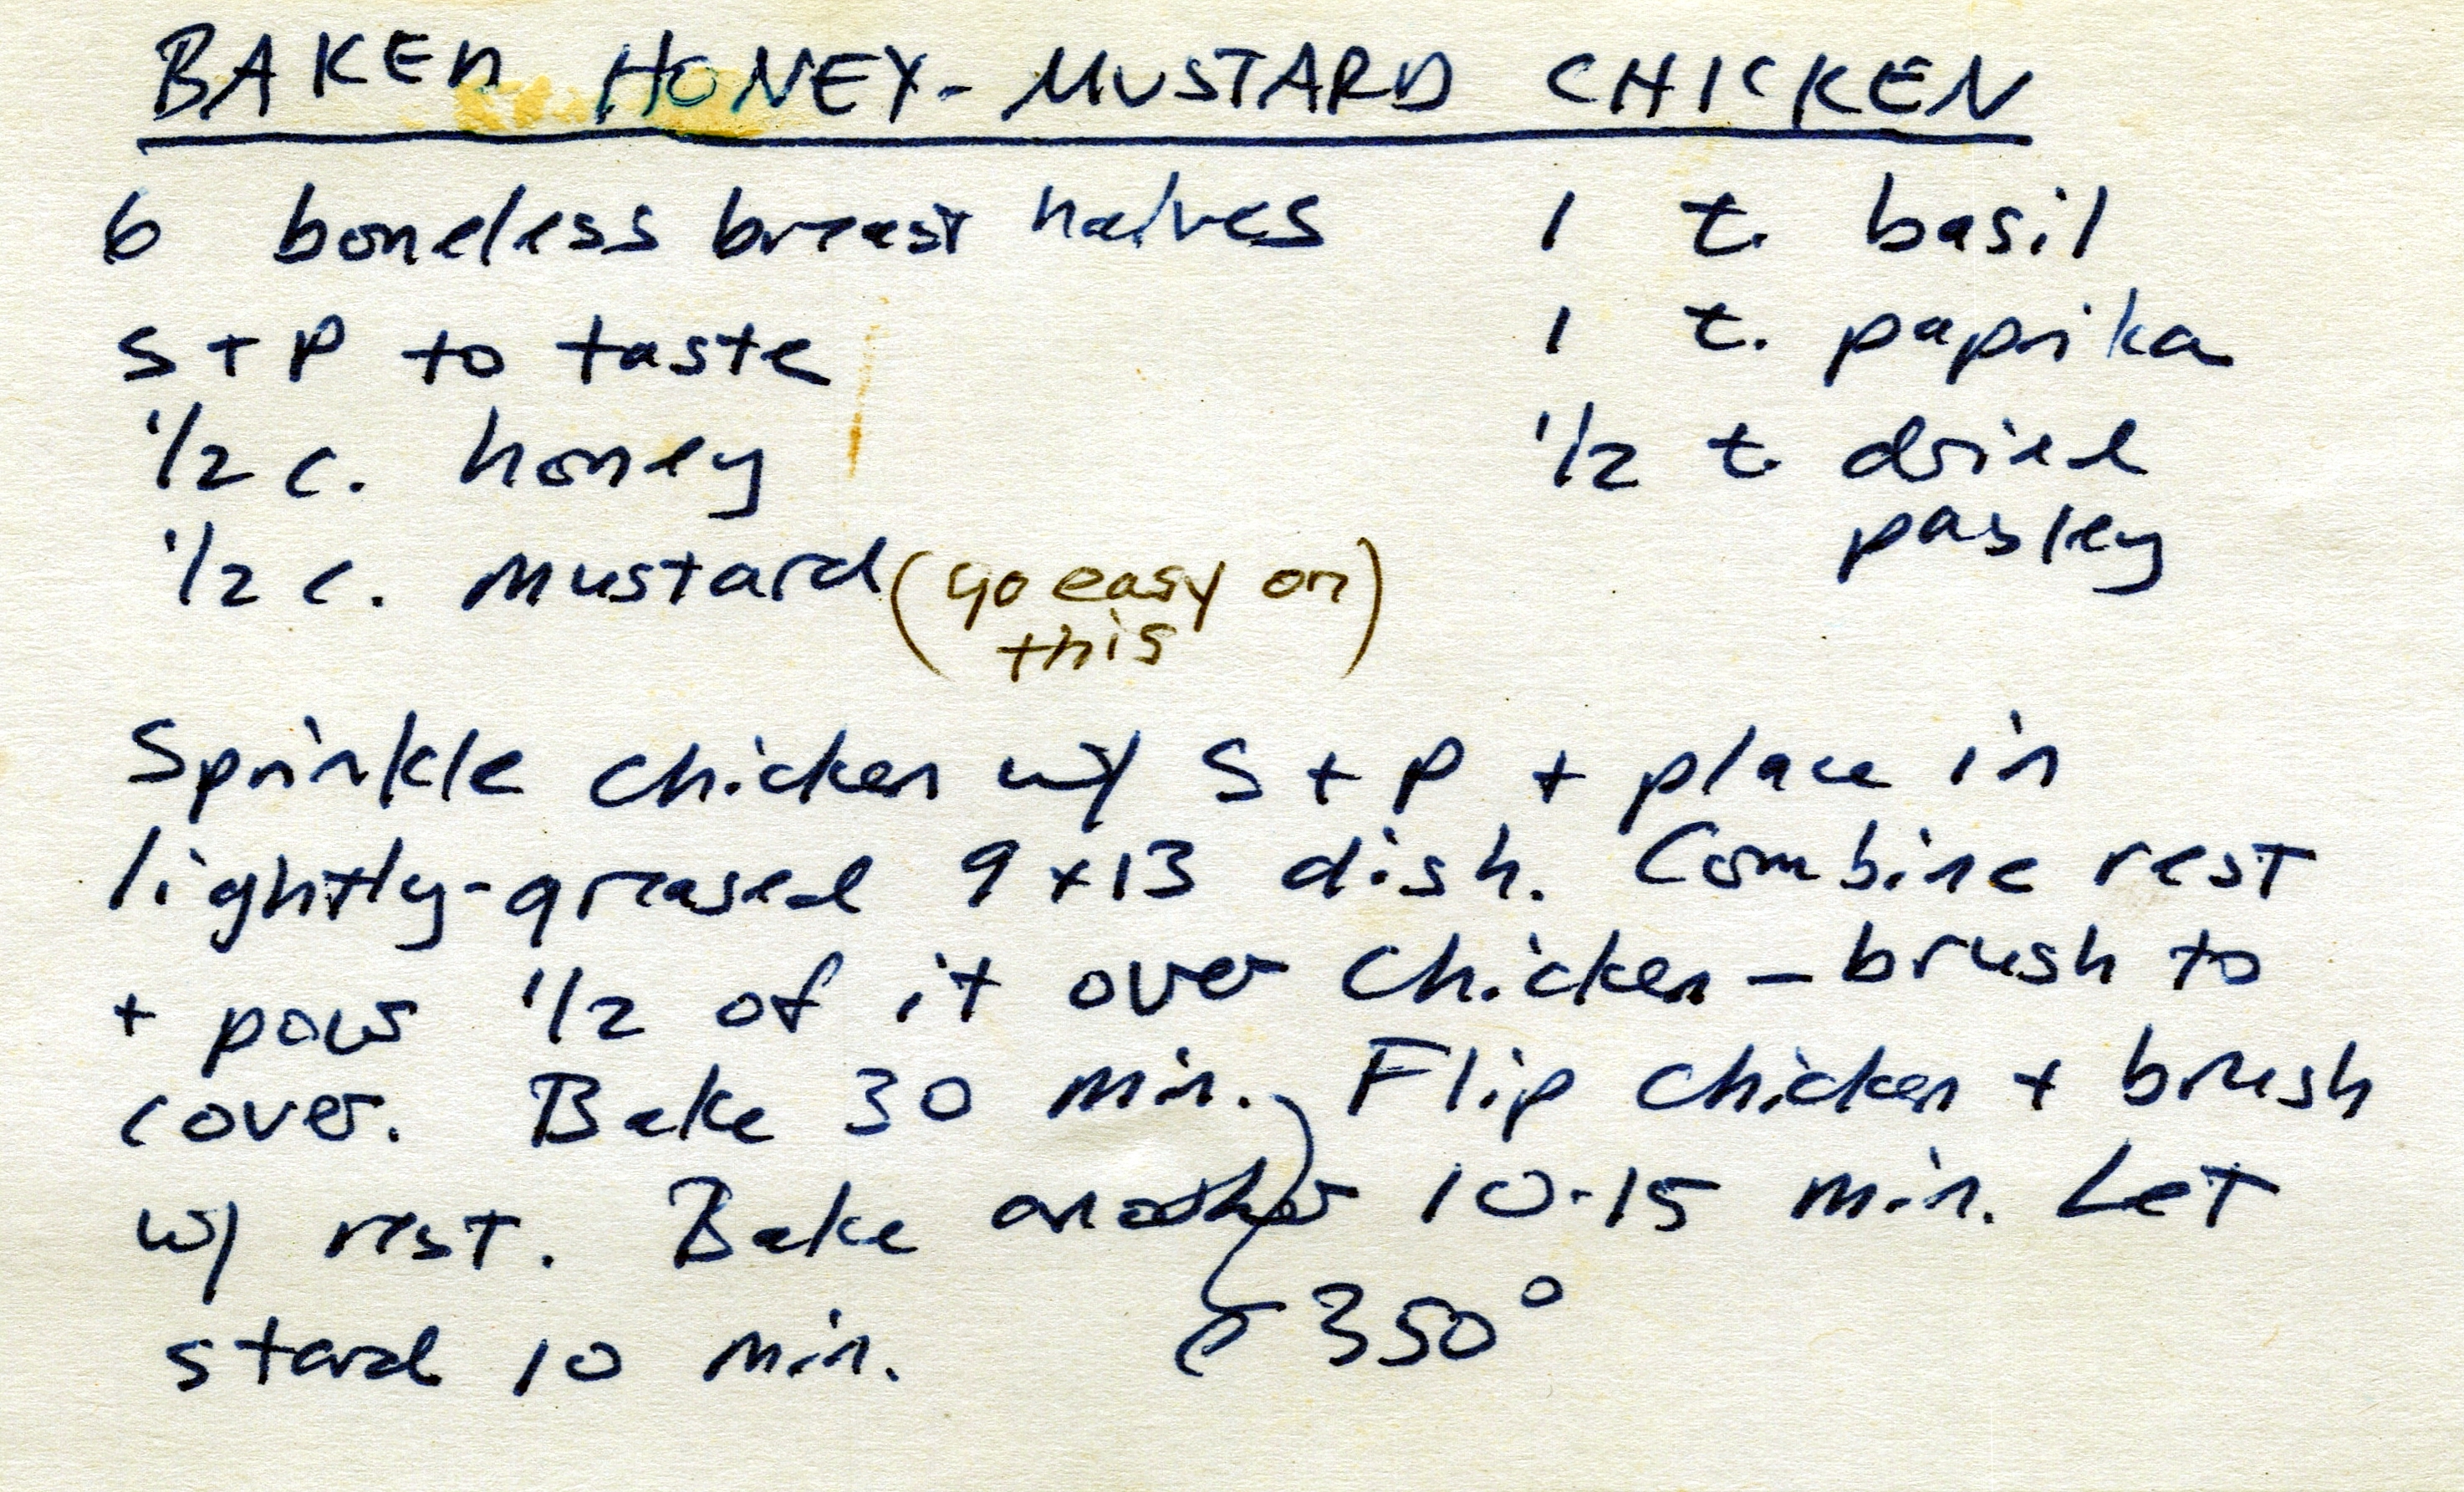 BAKED HONEY-MUSTARD CHICKEN
6 boneless breast halves
S + P to taste
1/2 c. honey
1/2 c. mustard (go easy on
this)
1 t. basil
1 t. paprika
1/2 t. dried
pasley
Sprinkle chicken w/ S + P + place in
lightly-greased 9x13 dish. Combine rest
+ pour 1/2 of it over chicken - brush to
cover. Bake 30 min. Flip chicken + brush
w/ rest. Bake another 10-15 min. Let
stand 10 min.
@ 350°